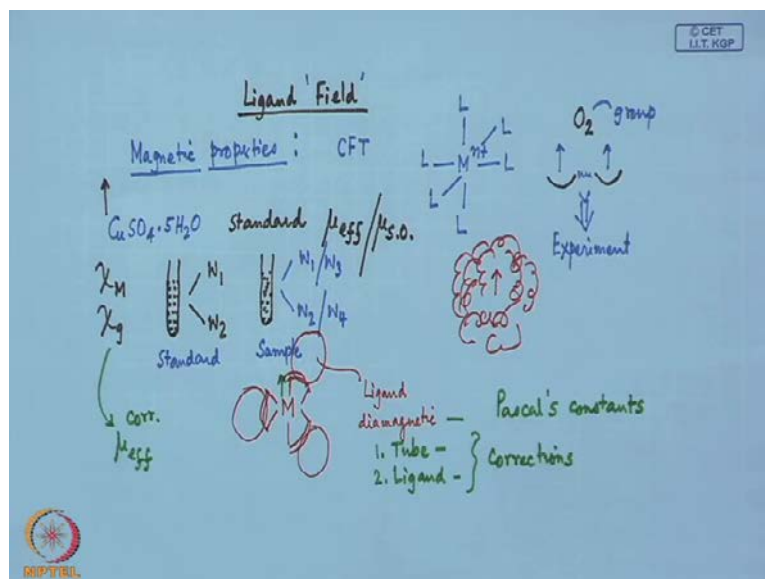 © CET
I.I.T. KGP
Ligand 'Field'
Magnetic properties : CFT
L
L
L M^n+ L
L
L
O2 group
Experiment
CuSO4·5H2O
Standard
μeff / μs.o.
χM
χg
W1
W2
Standard
W1 / W3
W2 / W4
Sample
M
Ligand
diamagnetic — Pascal's constants
1. Tube –
2. Ligand – } Corrections
corr.
μeff
NPTEL